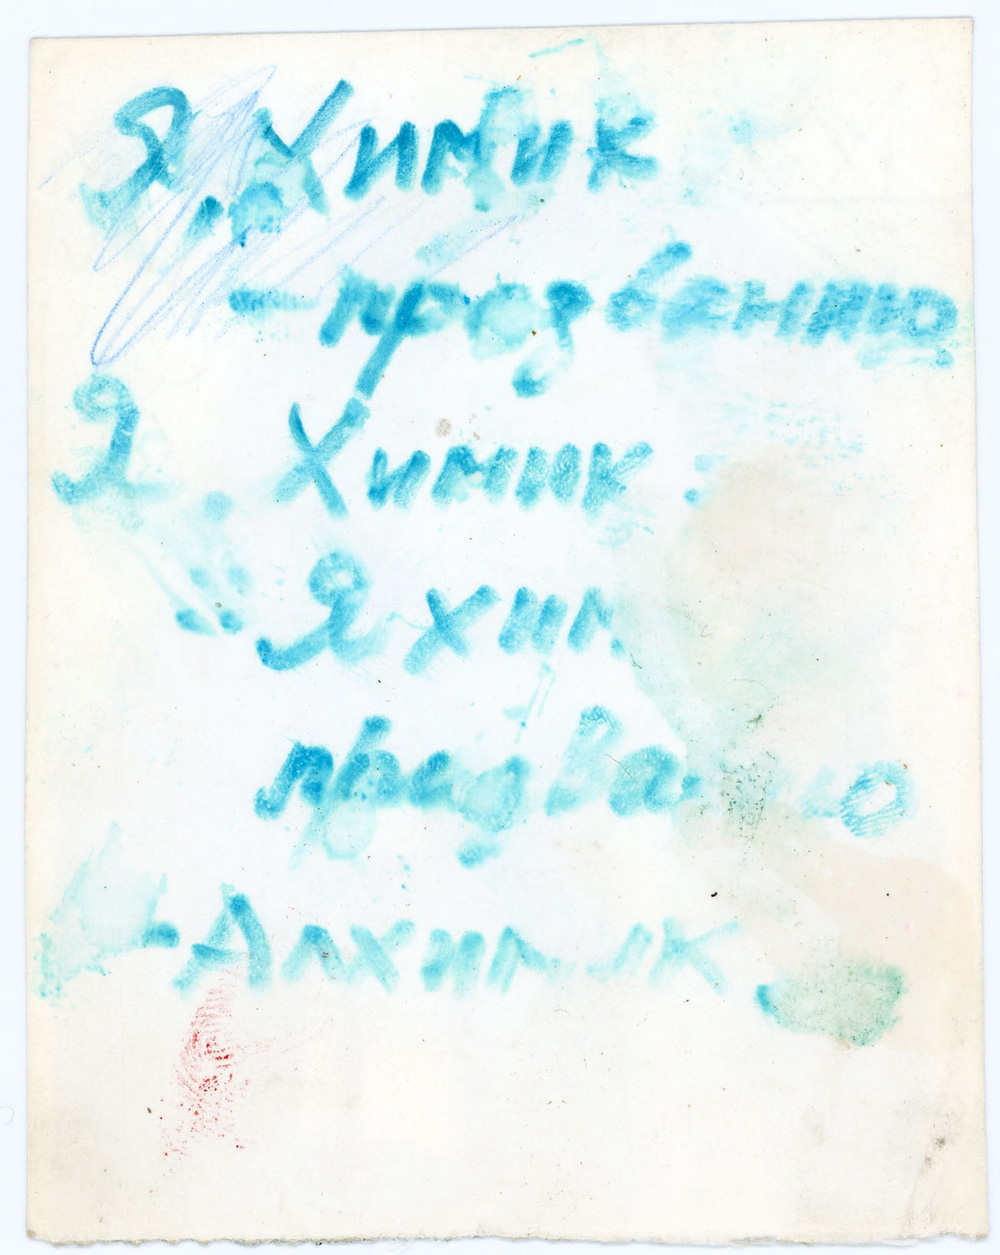 Я, Химик
-прозванию
Я Химик
Я хим
-Алхимик